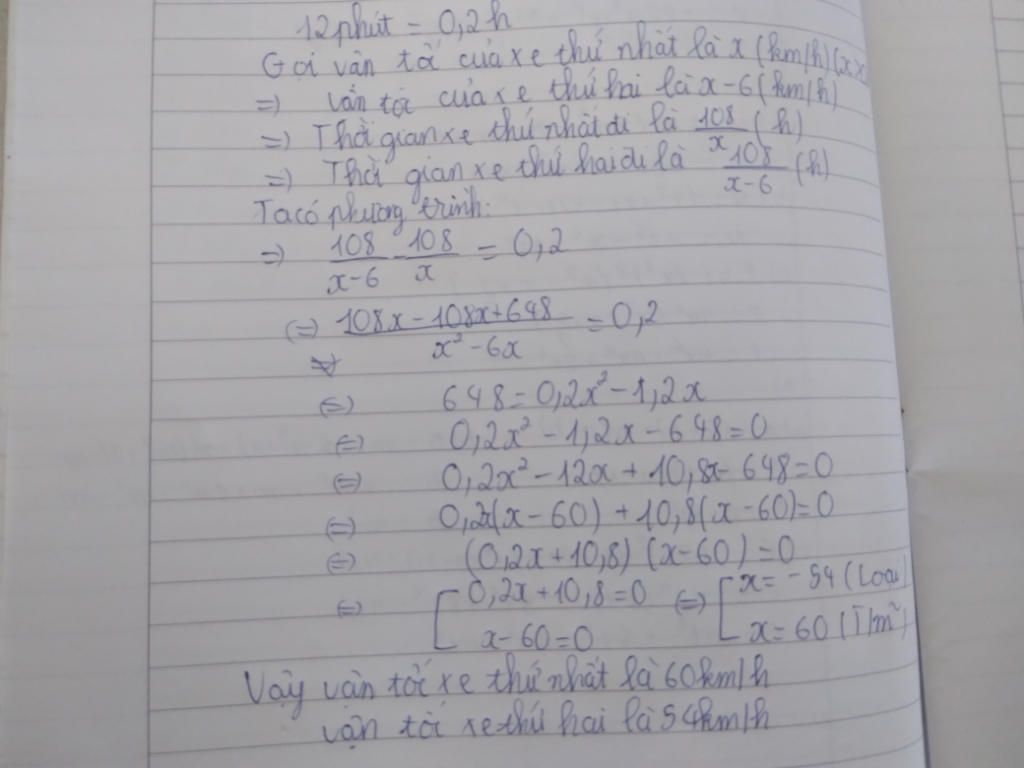 12 phút = 0,2h
Gọi vận tốc của xe thứ nhất là x (km/h) (x
=) vận tốc của xe thứ hai là x-6 (km/h)
=) Thời gian xe thứ nhất đi là 108/x (h)
=) Thời gian xe thứ hai đi là 108/(x-6) (h)
Ta có phương trình:
=) 108/(x-6) - 108/x = 0,2
(=) (108x - 108x + 648)/(x² - 6x) = 0,2
(=) 648 = 0,2x² - 1,2x
(=) 0,2x² - 1,2x - 648 = 0
(=) 0,2x² - 12x + 10,8x - 648 = 0
(=) 0,2x(x - 60) + 10,8(x - 60) = 0
(=) (0,2x + 10,8) (x - 60) = 0
(=) [ 0,2x + 10,8 = 0 (=) [ x = -54 (Loại)
x - 60 = 0 x = 60 (T/m)
Vậy vận tốc xe thứ nhất là 60km/h
vận tốc xe thứ hai là 54km/h